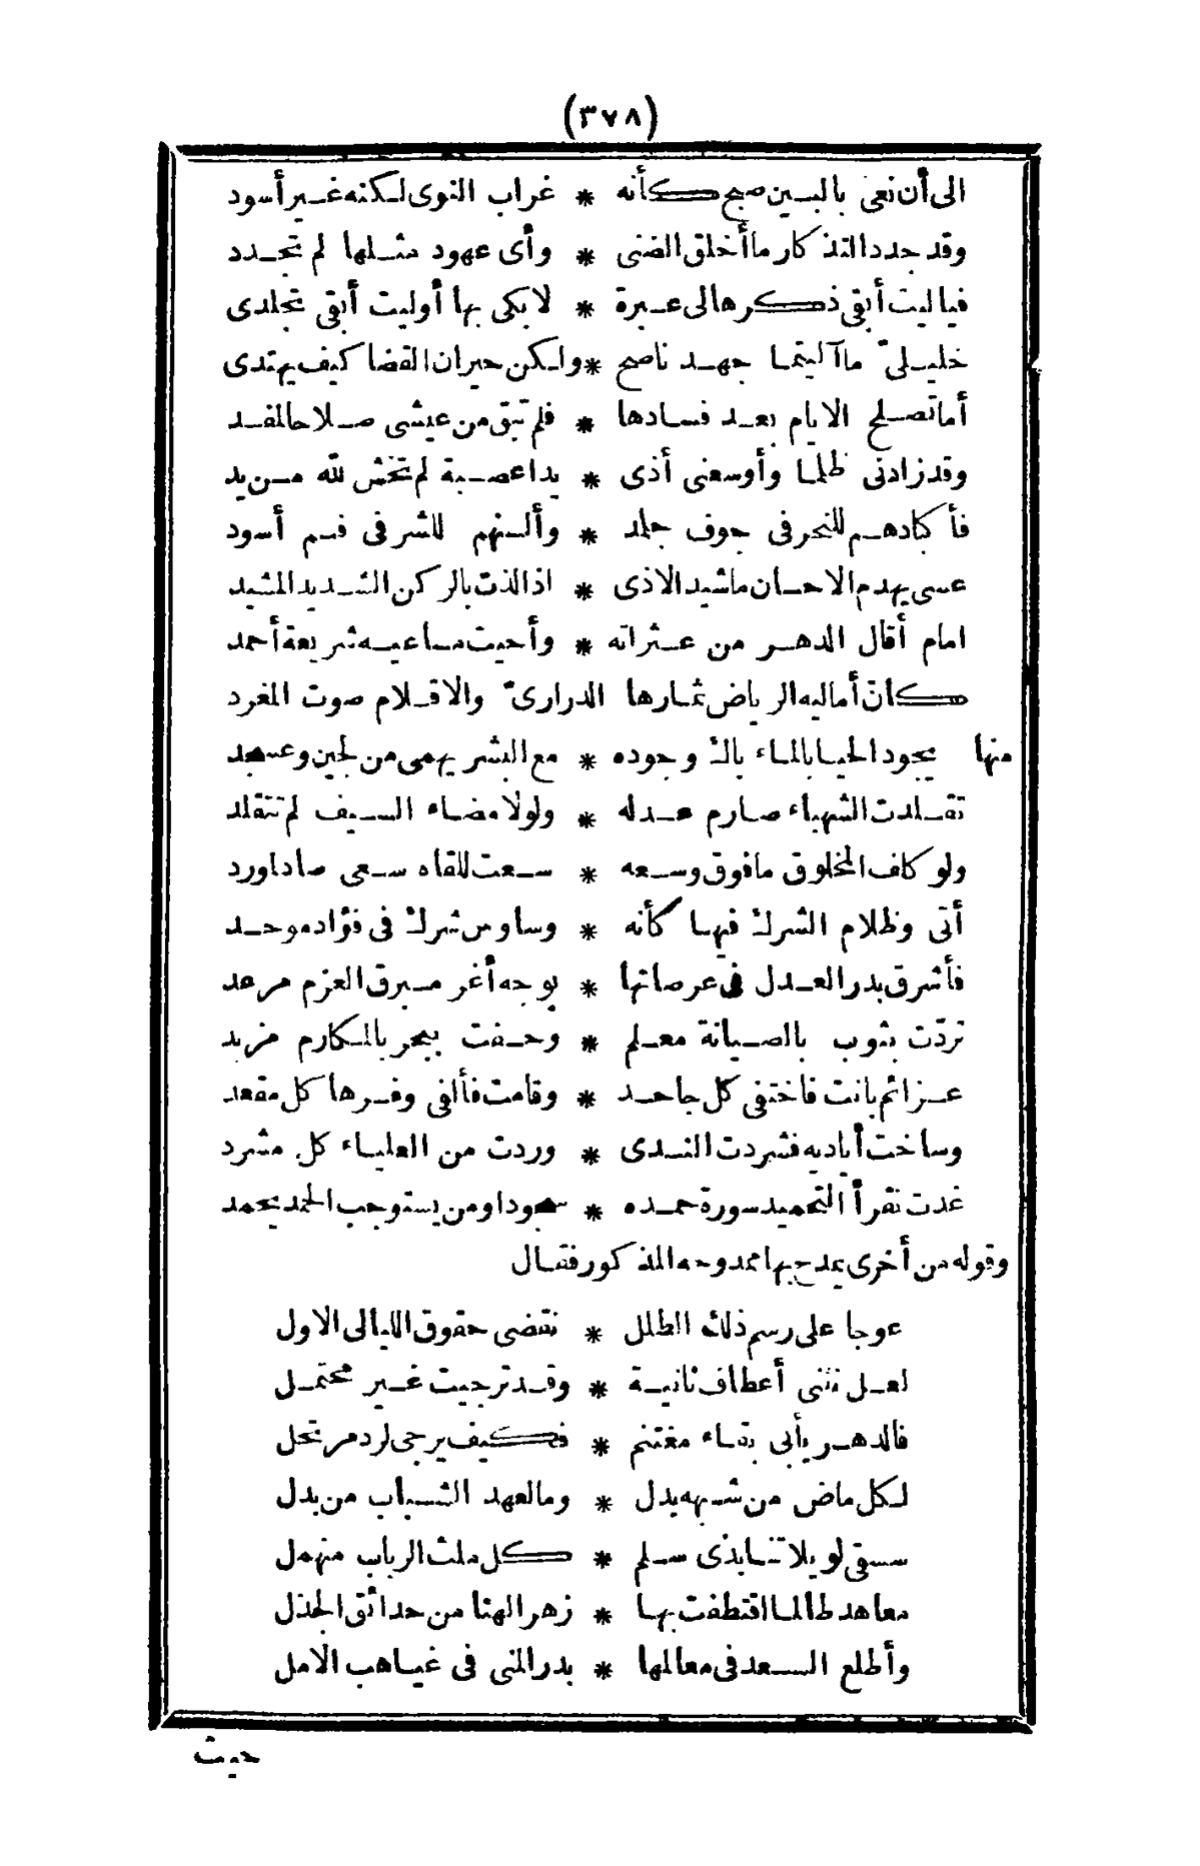 (٣٧٨)
الى أن نعى بالبين صبح كأنه * غراب النوى لكنه غير أسود
وقد جدد التذكار ما أخلق الضنى * وأى عهود مثلها لم تجدد
فيا ليت أبقى ذكرها لى عبرة * لابكى بها أوليت أبقى تجلدى
خليلىّ ما آليتما جهد ناصح * ولكن حيران القضا كيف يهتدى
أما تصلح الايام بعد فسادها * فلم تبق من عيشى صلاحا لمفسد
وقد زادنى ظلما وأوسعنى أذى * يدا عصبة لم تخش لله من يد
فأكبادهم للنحر فى جوف جلمد * وألسنهم للشر فى فم أسود
عسى يهدم الاحسان ما شيد الاذى * اذا لذت بالركن الشديد المشيد
امام أقال الدهر من عثراته * وأحيت مساعيه شريعة أحمد
كأنّ أماليه الرياض ثمارها الدرارىّ والاقلام صوت المغرد
منها يجود الحيا بالماء باك وجوده * مع البشر يهمى من لجين وعسجد
تقلدت الشهباء صارم عدله * ولولا مضاء السيف لم تتقلد
ولو كاف المخلوق مافوق وسعه * سعت للقاه سعى صاد لورد
أتى وظلام الشرك فيها كأنه * وساوس شرك فى فؤاد موحد
فأشرق بدر العدل فى عرصاتها * بوجه أغر مبرق العزم مرعد
تردّت بثوب بالصيانة معلم * وحفت ببحر بالمكارم مزبد
عزائم بانت فاختفى كل جاحد * وقامت فألفى وفرها كل مقعد
وساخت أياديه فشردت الندى * وردت من العلياء كل مشرد
غدت تقرأ التحميد سورة حمده * سجودا ومن يستوجب الحمد يحمد
وقوله من أخرى يمدح بها ممدوحه المذكور فقال
عوجا على رسم ذلك الطلل * نقضى حقوق الليالى الاول
لعل نثنى أعطاف ثانية * وقد ترجيت غير محتمل
فالدهر يأبى بقاء مغتنم * فكيف يرجى لرد مرتحل
لكل ماض من شبهه بدل * وما لعهد الشباب من بدل
سقى لويلاتنا بذى سلم * كل ملث الرباب منهمل
معاهد طالما اقتطفت بها * زهر الهنا من حدائق الجذل
وأطلع السعد فى معالمها * بدر المنى فى غياهب الامل
حيث